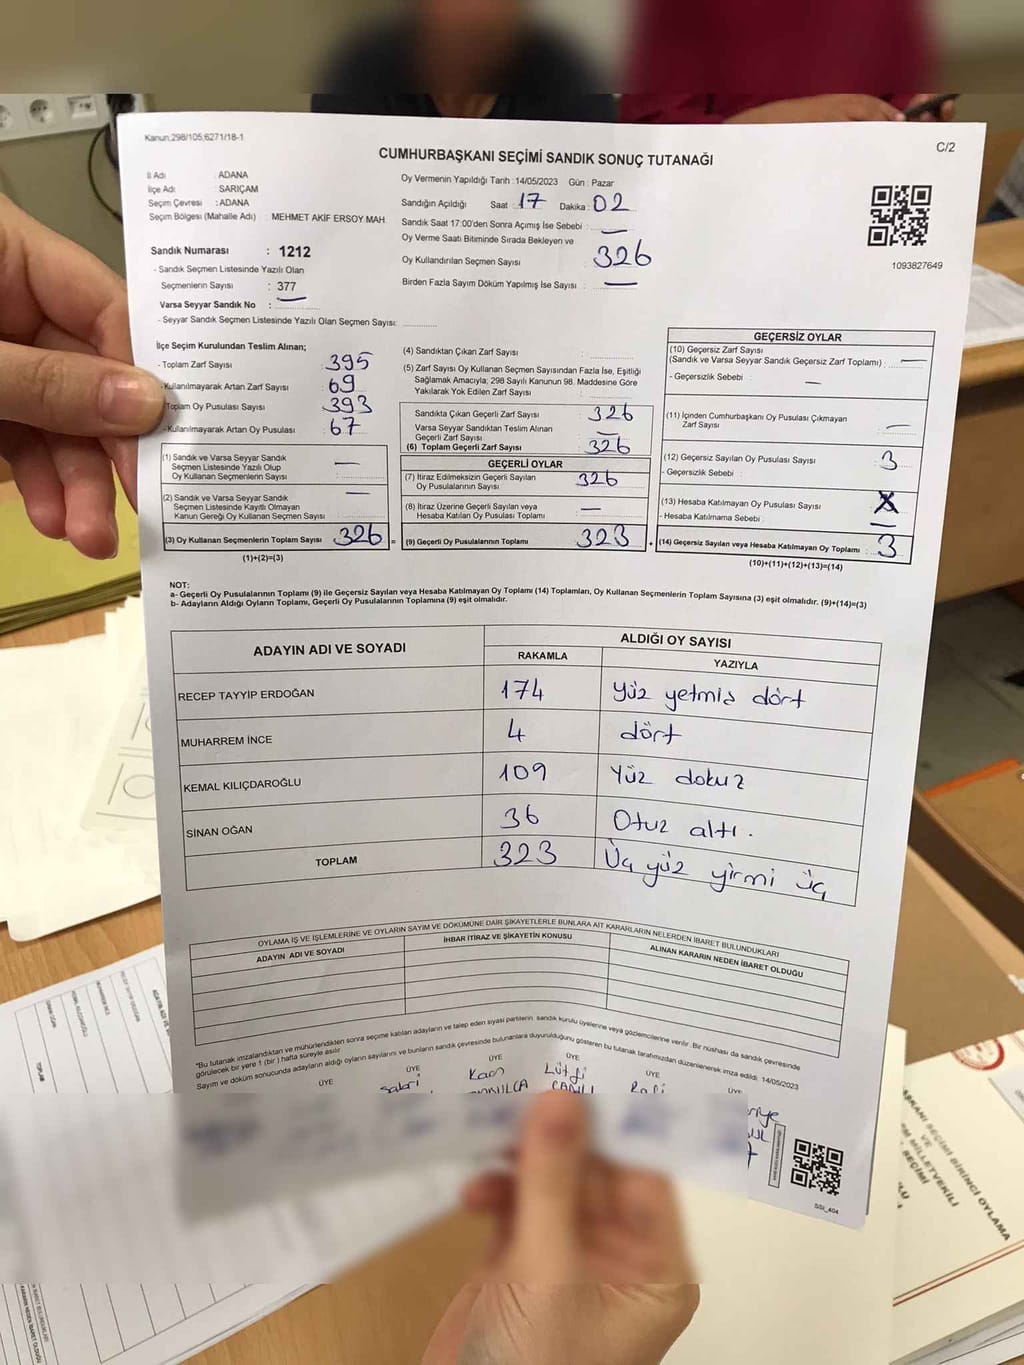 Kanun:298/105,6271/18-1
C/2
CUMHURBAŞKANI SEÇİMİ SANDIK SONUÇ TUTANAĞI
İl Adı : ADANA
İlçe Adı : SARIÇAM
Seçim Çevresi : ADANA
Seçim Bölgesi (Mahalle Adı) : MEHMET AKİF ERSOY MAH.
Sandık Numarası : 1212
- Sandık Seçmen Listesinde Yazılı Olan
Seçmenlerin Sayısı : 377
Varsa Seyyar Sandık No :
- Seyyar Sandık Seçmen Listesinde Yazılı Olan Seçmen Sayısı:
Oy Vermenin Yapıldığı Tarih :14/05/2023 Gün : Pazar
Sandığın Açıldığı Saat : 17 Dakika : 02
Sandık Saat 17:00'den Sonra Açımış İse Sebebi : —
Oy Verme Saati Bitiminde Sırada Bekleyen ve
Oy Kullandırılan Seçmen Sayısı : 326
Birden Fazla Sayım Döküm Yapılmış İse Sayısı : —
1093827649
İlçe Seçim Kurulundan Teslim Alınan;
- Toplam Zarf Sayısı : 395
- Kullanılmayarak Artan Zarf Sayısı : 69
Toplam Oy Pusulası Sayısı : 393
- Kullanılmayarak Artan Oy Pusulası : 67
(1) Sandık ve Varsa Seyyar Sandık
Seçmen Listesinde Yazılı Olup
Oy Kullanan Seçmenlerin Sayısı : —
(2) Sandık ve Varsa Seyyar Sandık
Seçmen Listesinde Kayıtlı Olmayan
Kanun Gereği Oy Kullanan Seçmen Sayısı : —
(3) Oy Kullanan Seçmenlerin Toplam Sayısı : 326 =
(1)+(2)=(3)
(4) Sandıktan Çıkan Zarf Sayısı :
(5) Zarf Sayısı Oy Kullanan Seçmen Sayısından Fazla İse, Eşitliği
Sağlamak Amacıyla; 298 Sayılı Kanunun 98. Maddesine Göre
Yakılarak Yok Edilen Zarf Sayısı :
Sandıkta Çıkan Geçerli Zarf Sayısı : 326
Varsa Seyyar Sandıktan Teslim Alınan
Geçerli Zarf Sayısı : —
(6) Toplam Geçerli Zarf Sayısı : 326
GEÇERLİ OYLAR
(7) İtiraz Edilmeksizin Geçerli Sayılan
Oy Pusulalarının Sayısı : 326
(8) İtiraz Üzerine Geçerli Sayılan veya
Hesaba Katılan Oy Pusulası Toplamı : —
(9) Geçerli Oy Pusulalarının Toplamı : 323 +
GEÇERSİZ OYLAR
(10) Geçersiz Zarf Sayısı
(Sandık ve Varsa Seyyar Sandık Geçersiz Zarf Toplamı) : —
- Geçersizlik Sebebi : —
(11) İçinden Cumhurbaşkanı Oy Pusulası Çıkmayan
Zarf Sayısı : —
(12) Geçersiz Sayılan Oy Pusulası Sayısı : 3
- Geçersizlik Sebebi :
(13) Hesaba Katılmayan Oy Pusulası Sayısı : —
- Hesaba Katılmama Sebebi :
(14) Geçersiz Sayılan veya Hesaba Katılmayan Oy Toplamı : 3
(10)+(11)+(12)+(13)=(14)
NOT:
a- Geçerli Oy Pusulalarının Toplamı (9) ile Geçersiz Sayılan veya Hesaba Katılmayan Oy Toplamı (14) Toplamları, Oy Kullanan Seçmenlerin Toplam Sayısına (3) eşit olmalıdır. (9)+(14)=(3)
b- Adayların Aldığı Oyların Toplamı, Geçerli Oy Pusulalarının Toplamına (9) eşit olmalıdır.
ADAYIN ADI VE SOYADI
ALDIĞI OY SAYISI
RAKAMLA YAZIYLA
RECEP TAYYİP ERDOĞAN 174 Yüz yetmiş dört
MUHARREM İNCE 4 dört
KEMAL KILIÇDAROĞLU 109 Yüz dokuz
SİNAN OĞAN 36 Otuz altı.
TOPLAM 323 Üç yüz yirmi üç
OYLAMA İŞ VE İŞLEMLERİNE VE OYLARIN SAYIM VE DÖKÜMÜNE DAİR ŞİKAYETLERLE BUNLARA AİT KARARLARIN NELERDEN İBARET BULUNDUKLARI
ADAYIN ADI VE SOYADI İHBAR İTİRAZ VE ŞİKAYETİN KONUSU ALINAN KARARIN NEDEN İBARET OLDUĞU
"Bu tutanak imzalandıktan ve mühürlendikten sonra seçime katılan adayların ve talep eden siyasi partilerin sandık kurulu üyelerine veya gözlemcilerine verilir. Bir nüshası da sandık çevresinde
görülecek bir yere 1 (bir) hafta süreyle asılır.
Sayım ve döküm sonucunda adayların aldığı oyların sayılarını ve bunların sandık çevresinde bulunanlara duyurulduğunu gösteren bu tutanak tarafımızdan düzenlenerek imza edildi. 14/05/2023
ÜYE ÜYE ÜYE ÜYE ÜYE ÜYE
Lütfi
SSİ_404
BAŞKANI SEÇİMİ BİRİNCİ OYLAMA
VE
MİLLETVEKİLİ
SEÇİMİ